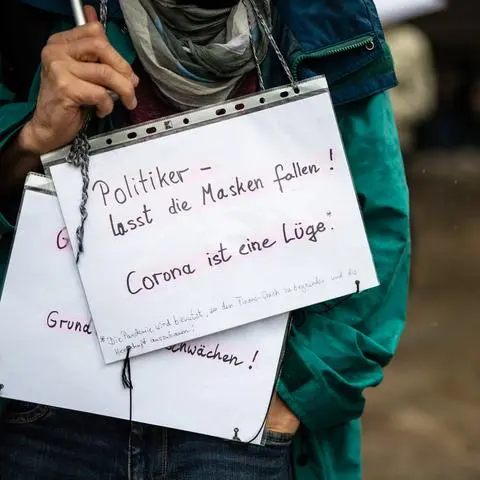 Politiker -
lasst die Masken fallen!
Corona ist eine Lüge*!
* Die Pandemie wird benutzt, um den Finanz-Crash zu begründen und die
auszubauen!
G
Grund
chwächen!